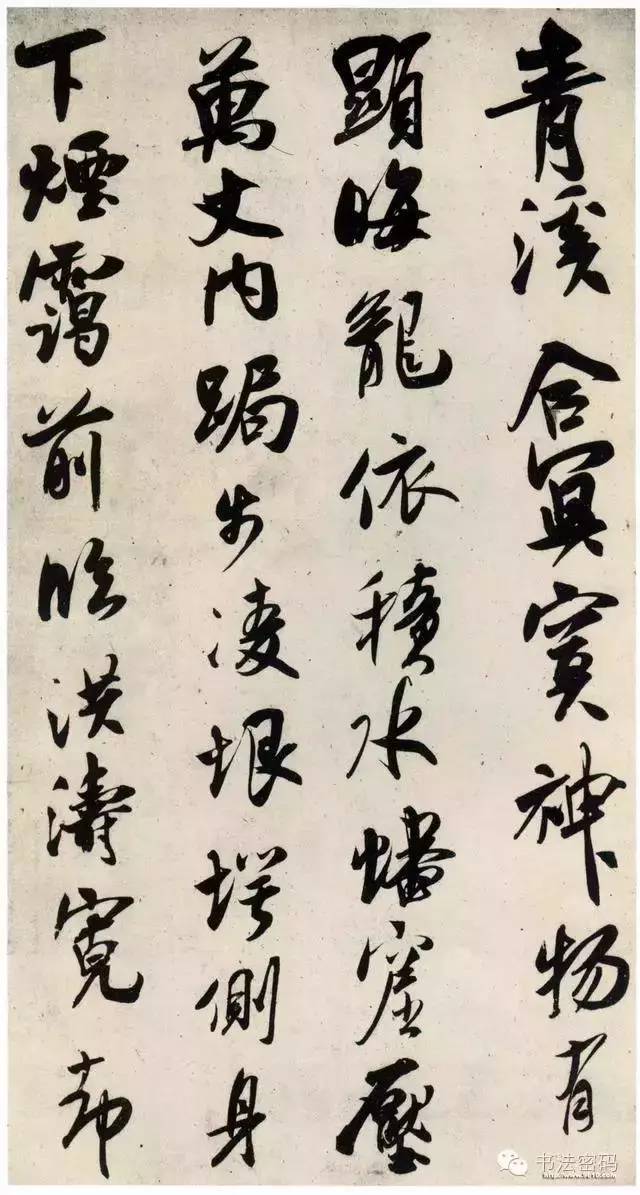 青溪合冥寞神物有
顯晦龍依積水蟠窟壓
萬丈內跼步凌垠堮側身
下煙靄前臨洪濤寬却
书法密码